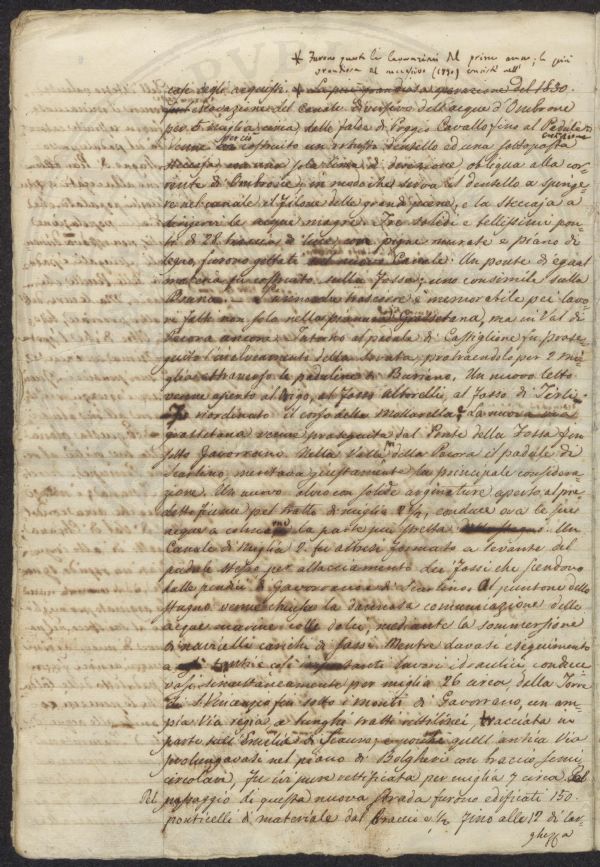 * Furono questi li lavorazioni del primo anno, la più
grandiosa del successivo (1830) consisté nell'
casi degli acquisti. * La più grandiosa operazione del 1830.
escavazione del Canale diversivo dell'acque d'Ombrone
per 5 miglia circa dalle falde di Poggio Cavallo fino al Padule
Venne costruito un robusto dentello ed una sottoposta
steccaja in una sola linea di direzione obliqua alla cor-
rente di Ombrone, in modo che serva il dentello a spinge-
re nel canale il filone delle grandi piene, e la steccaja a
dirigervi le acque magre. Tre solidi e bellissimi pon-
ti di 28 braccia di luce, con pigne murate e piano di
legno, furono gettati nuovo Canale. Un ponte di egual
materia fu costruito sulla Fossa, uno consimile sulla
Bruna. - L'anno trascorse memorabile per lavo-
ri fatti non solo nella pianura Grossetana, ma in Val di
Pecora ancora. Intorno al padule di Castiglione fu prose-
guito l'inalveamento della Sovata protraendolo per 2 mi-
glia attraverso le paduline di Buriano. Un nuovo letto
venne aperto al Rigo, al Fosso Alborelli, al Fosso di Tirli
riordinato il corso della Mollarella. La nuova via
grossetana venne proseguita dal Ponte della Fossa fin
sotto Gavorrano. Nella Valle della Pecora il padule di
Scarlino, meritava giustamente la principale considera-
zione. Un nuovo alveo con solide arginature aperto al pre-
detto fiume pel tratto di miglia 2 1/2, conduce ora le sue
acque a colmare la parte più stretta Un
Canale di Miglia 2 fu altresì formato a levante del
padule stesso per allacciamento dei Fossi che scendono
dalle pendici di Gavorrano e di Scarlino. Al puntone dello
stagno venne chiusa la dannosa comunicazione delle
acque marine colle dolci, mediante la sommersione
di navicelli carichi di sassi. Mentre davasi eseguimento
a così importanti lavori idraulici, conduce-
vasi simultaneamente per miglia 26 circa, della Torre
di S. Vincenzo fin sotto i monti di Gavorrano, un am-
pia via regia a lunghi tratti rettilinei, tracciata in
parte sull'Emilia di Scauro; e poiché quell'antica via
prolungavasi nel piano di Bolgheri con braccio semi
circolare, fu ivi pure rettificata per miglia 7 circa. Pel
Pel passaggio di questa nuova strada furono edificati 150
ponticelli di materiale dal braccio e 1/2 fino alle 12 di lar-
ghezza